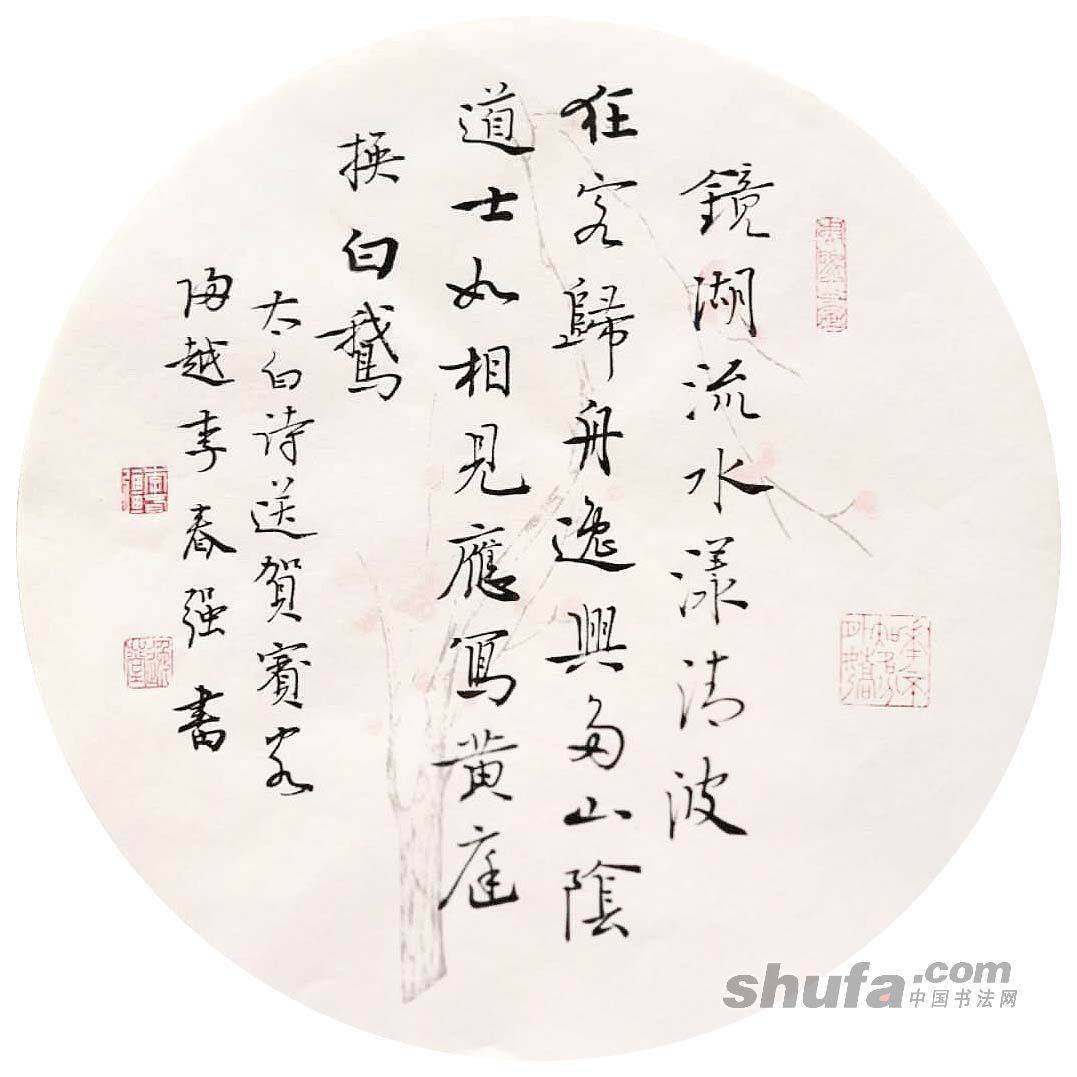 鏡湖流水漾清波
狂客歸舟逸興多山陰
道士如相見應寫黄庭
换白鵝
太白诗送贺賓客
海越李春强書
shufa.com
中国书法网